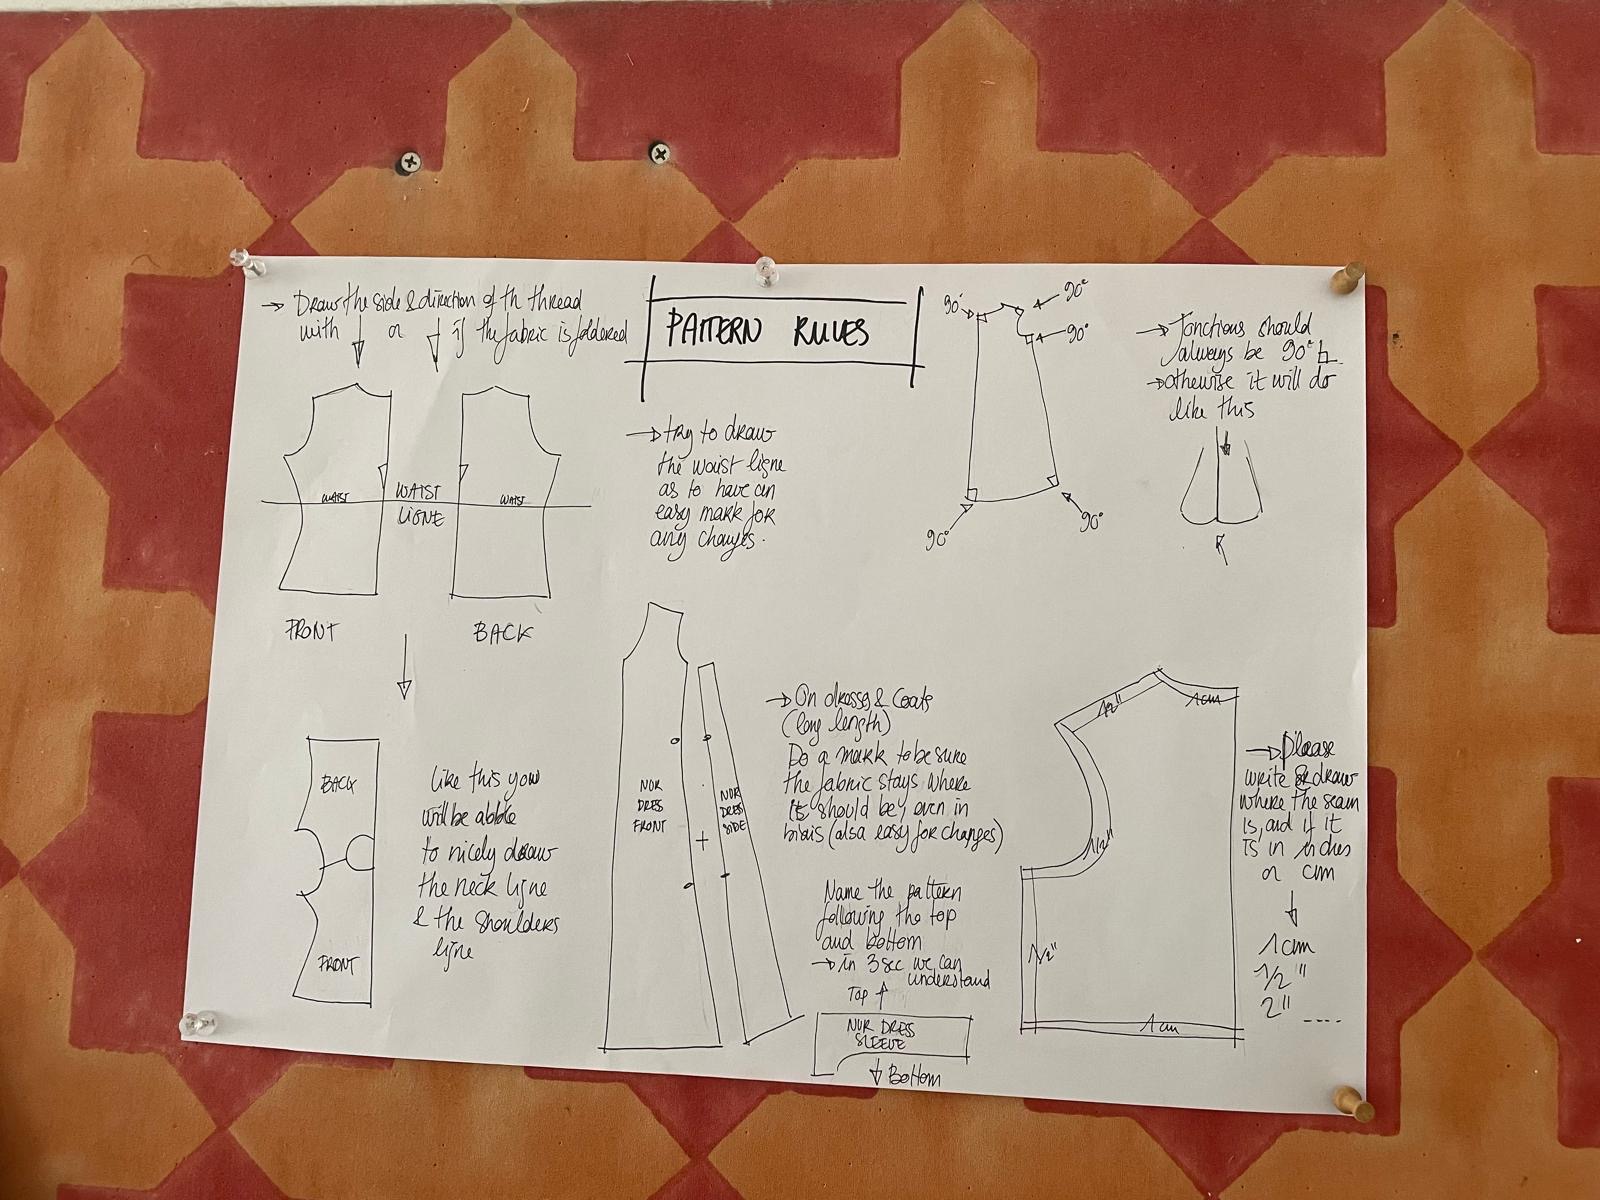 → Draw the side & direction of th thread
with ↓ or ↓ if the fabric is foldered
PATTERN RULES
WAIST
WAIST
LIGNE
WAIST
FRONT
BACK
→ try to draw
the waist ligne
as to have an
easy mark for
any changes.
90°
90°
90°
90°
90°
→ Jonctions should
always be 90°
→ otherwise it will do
like this
BACK
FRONT
Like this you
will be abble
to nicely draw
the neck ligne
& the shoulders
ligne
NUR
DRESS
FRONT
NUR
DRESS
SIDE
→ On dresses & Coats
(long length)
Do a mark to be sure
the fabric stays where
it should be, even in
biais (also easy for changes)
Name the pattern
following the top
and bottom
→ in 3 sec we can
understand
Top ↑
NUR DRESS
SLEEVE
↓ Bottom
1/2"
1cm
1/2"
1/2"
1cm
→ Please
write & draw
where the seam
is, and if it
is in inches
or cm
↓
1cm
1/2"
2" ----